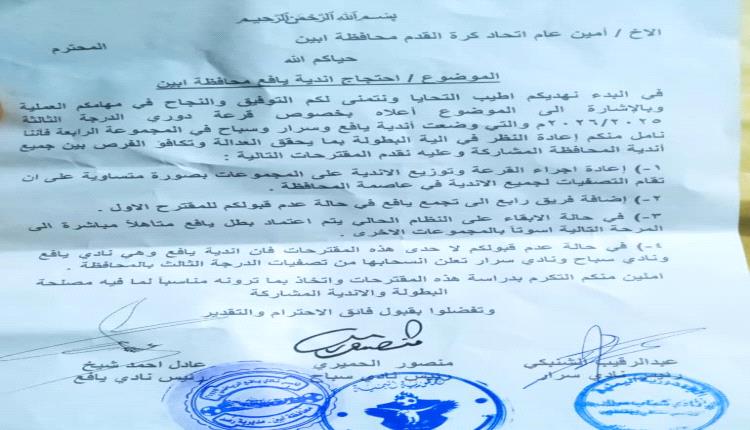 بسم الله الرحمن الرحيم
الاخ / أمين عام اتحاد كرة القدم محافظة ابين
المحترم
حياكم الله
الموضوع / احتجاج اندية يافع محافظة ابين
في البدء نهديكم اطيب التحايا ونتمنى لكم التوفيق والنجاح في مهامكم العملية
وبالإشارة الى الموضوع أعلاه بخصوص قرعة دوري الدرجة الثالثة
٢٠٢٦/٢٠٢٥م والتي وضعت أندية يافع وسرار وسباح في المجموعة الرابعة فأننا
نامل منكم إعادة النظر في الية البطولة بما يحقق العدالة وتكافؤ الفرص بين جميع
أندية المحافظة المشاركة وعليه نقدم المقترحات التالية :
١-) إعادة اجراء القرعة وتوزيع الاندية على المجموعات بصورة متساوية على ان
تقام التصفيات لجميع الاندية في عاصمة المحافظة .
٢-) إضافة فريق رابع الى تجمع يافع في حالة عدم قبولكم للمقترح الاول .
٣-) في حالة الابقاء على النظام الحالي يتم اعتماد بطل يافع متأهلاً مباشرة الى
المرحة التالية اسوتاً بالمجموعات الاخرى .
٤-) في حالة عدم قبولكم لا حدى هذه المقترحات فان اندية يافع وهي نادي يافع
ونادي سباح ونادي سرار تعلن انسحابها من تصفيات الدرجة الثالث بالمحافظة .
املين منكم التكرم بدراسة هذه المقترحات واتخاذ بما ترونه مناسباً لما فيه مصلحة
البطولة والاندية المشاركة
وتفضلوا بقبول فائق الاحترام والتقدير
عبدالرقيب الشنبكي
رئيس نادي سرار
منصور الحميري
رئيس نادي سباح
عادل احمد شيخ
رئيس نادي يافع